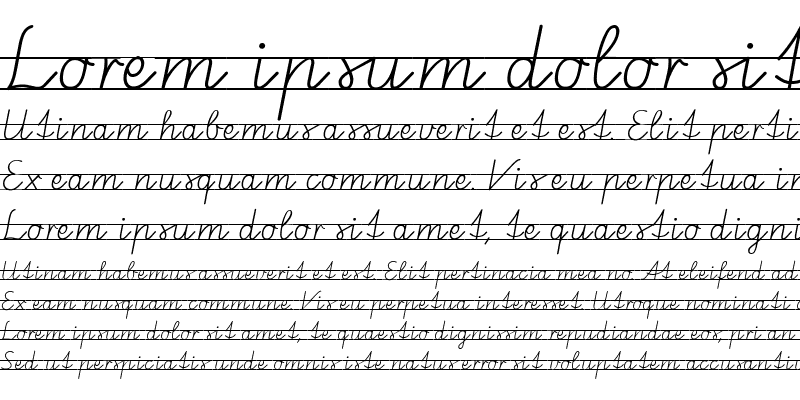 Lorem ipsum dolor sit
Utinam habemus assueverit et est. Elit perti
Ex eam nusquam commune. Vis eu perpetua in
Lorem ipsum dolor sit amet, te quaestio digni
Utinam habemus assueverit et est. Elit pertinacia mea no. At eleifend ad
Ex eam nusquam commune. Vis eu perpetua interesset. Utroque nominati
Lorem ipsum dolor sit amet, te quaestio dignissim repudiandae eos, pri an
Sed ut perspiciatis unde omnis iste natus error sit voluptatem accusanti